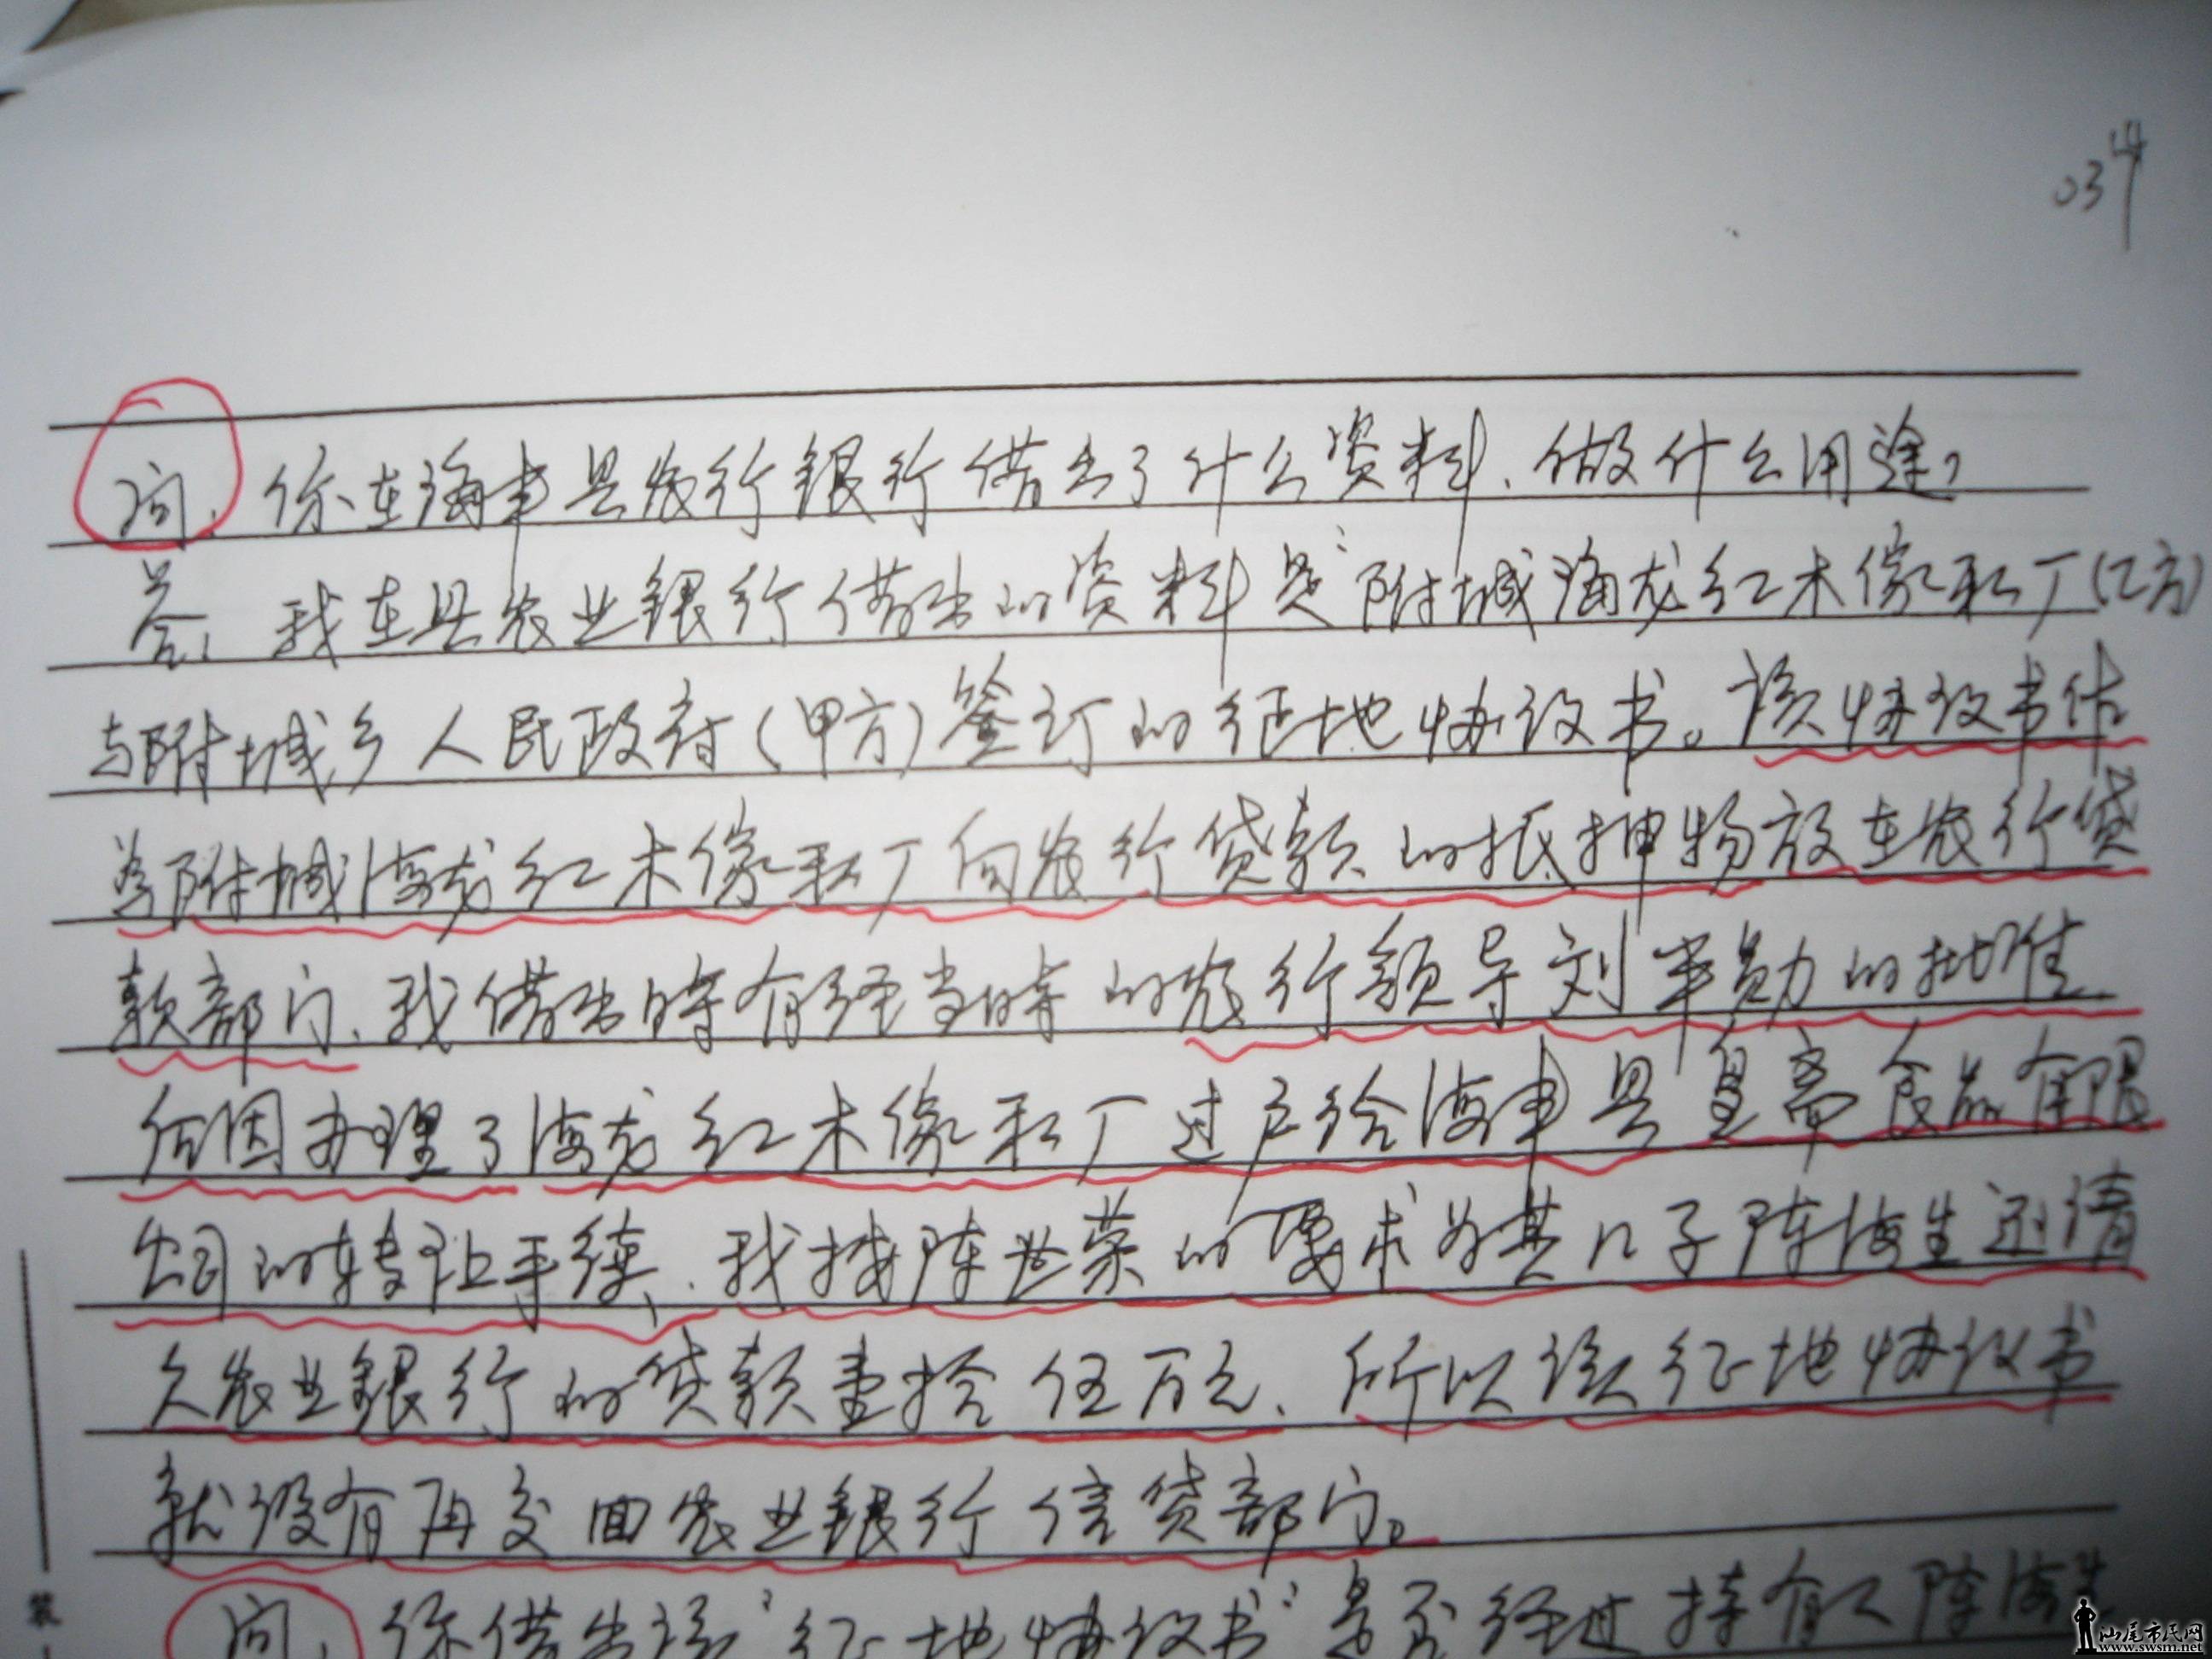 034
问：你在海丰县农行银行借出了什么资料、做什么用途？
答：我在县农业银行借出的资料是"附城海龙红木傢私厂(乙方)
与附城乡人民政府(甲方)签订的征地协议书。该协议书作
为附城海龙红木傢私厂向农行贷款的抵押物放在农行贷
款部门、我借出时有经当时的农行领导刘半勋的批准
后因办理了海龙红木傢私厂过户给海丰县皇帝食品有限
公司的转让手续、我按陈世荣的要求为其儿子陈海生还清
欠农业银行的贷款壹拾伍万元、所以该征地协议书
就没有再交回农业银行信贷部门。
问：你借出该"征地协议书"是否经过持有人陈海生
装
汕尾市民网
www.swsm.net